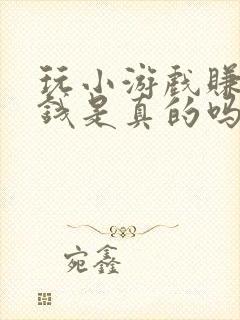 玩小游戏赚
钱是真的吗
宛鑫